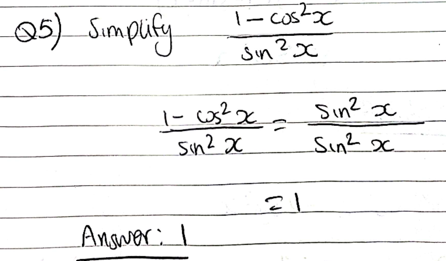 Q5) Simplify (1 - cos²x)/(sin²x)
(1 - cos²x)/(sin²x) = (sin²x)/(sin²x)
= 1
Answer: 1